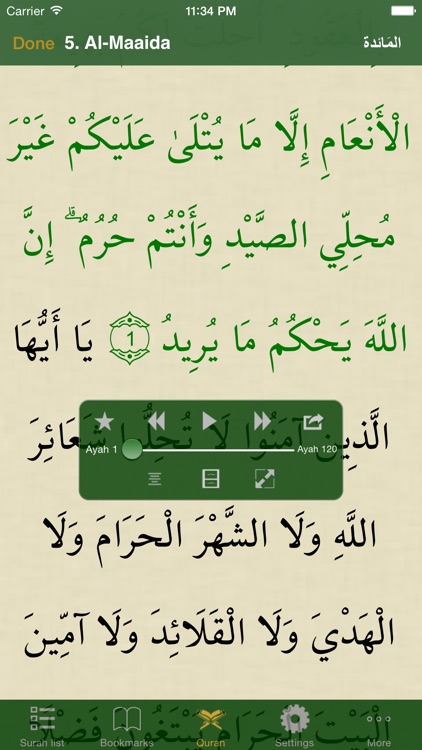 Carrier 11:34 PM
Done 5. Al-Maaida المَائدة
العُقُودِ ۚ أُحِلَّتْ
الْأَنْعَامِ إِلَّا مَا يُتْلَىٰ عَلَيْكُمْ غَيْرَ
مُحِلِّي الصَّيْدِ وَأَنْتُمْ حُرُمٌ ۗ إِنَّ
اللَّهَ يَحْكُمُ مَا يُرِيدُ 1 يَا أَيُّهَا
الَّذِينَ آمَنُوا لَا تُحِلُّوا شَعَائِرَ
Ayah 1 Ayah 120
اللَّهِ وَلَا الشَّهْرَ الْحَرَامَ وَلَا
الْهَدْيَ وَلَا الْقَلَائِدَ وَلَا آمِّينَ
الْبَيْتَ الْحَرَامَ يَبْتَغُونَ فَضْلًا
Surah list Bookmarks Quran Settings More